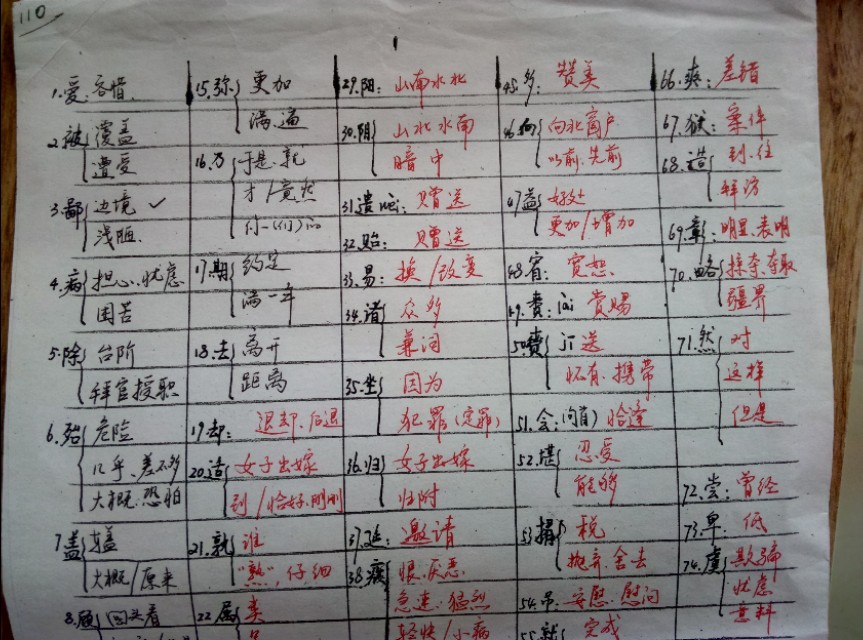 110
1.爱:吝惜
2.被{覆盖
遭受
3.鄙{边境 ✓
浅陋
4.病{担心.忧虑
困苦
5.除{台阶
拜官授职
6.殆{危险
几乎.差不多
大概.恐怕
7.盖{
大概/原来
8.顾{回头看
15.弥{更加
满.遍
16.乃{于是.就
才/竟然
17.期{约定
满一年
18.去{离开
距离
19.却:退却.后退
20.适{女子出嫁
到/恰好.刚刚
21.孰{谁
"熟",仔细
22.属{类
29.阳:山南水北
30.阴{山北水南
暗中
31.遗wèi:赠送
32.贻:赠送
33.易:换/改变
34.诸{众多
兼词
35.坐{因为
犯罪(定罪)
36.归{女子出嫁
归附
37.延:邀请
38.疾{恨.厌恶
急速.猛烈
轻快/小病
45.多:赞美
46.向{向北窗户
以前.先前
47.益{好处
更加/增加
48.宥:宽恕
49.赉:lài 赏赐
50.赍{jī 送
怀有.携带
51.会:(向育)恰逢
52.堪{忍受
能够
53.捐{税
抛弃.舍去
54.吊:安慰.慰问
55.就{完成
66.爽:差错
67.狱:案件
68.造{到.往
拜访
69.彰:明显.表明
70.略{掠夺.夺取
疆界
71.然{对
这样
但是
72.尝:曾经
73.卑:低
74.虞{欺骗
忧虑
意料